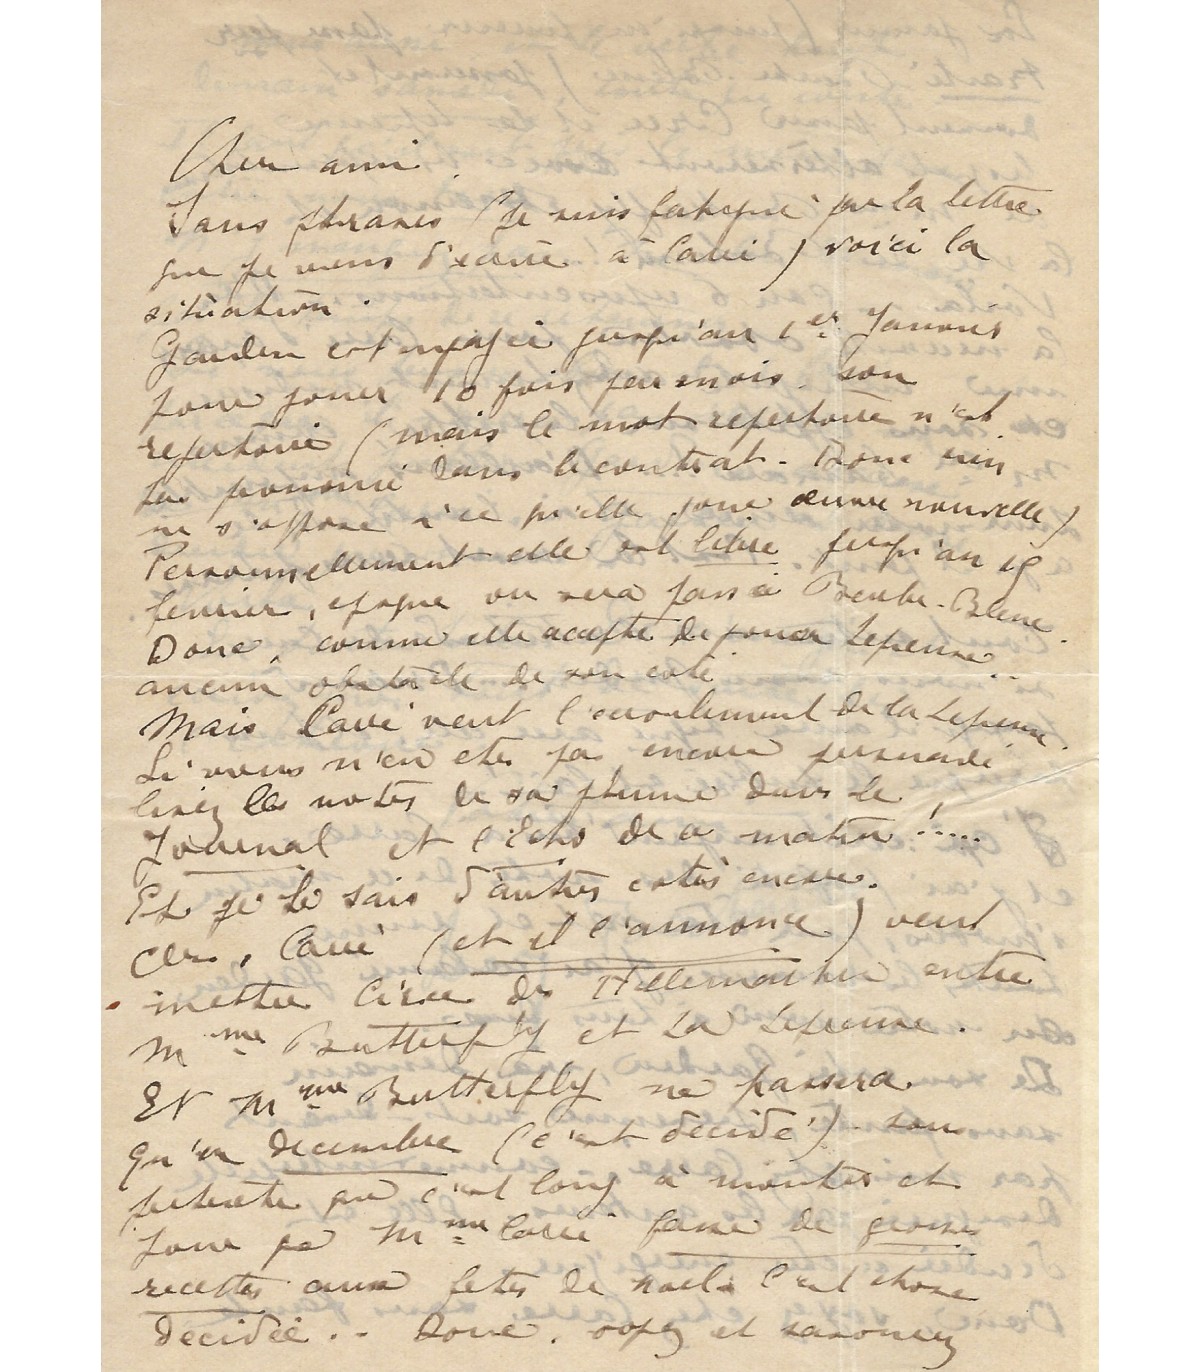 Cher ami.
Sans phrases (je suis fatigué par la lettre
que je viens d'ecrire à Carré) voici la
situation.
Garden est engagée jusqu'au 1er Janvier
pour jouer 10 fois par mois. Son
repertoire (mais le mot repertoire n'est
pas prononcé dans le contrat. Donc rien
ne s'oppose à ce qu'elle joue œuvre nouvelle)
Personnellement elle est libre jusqu'au 15
fevrier, epoque ou sera passé Barbe-Bleue.
Donc, comme elle accepte de jouer Lepreuse..
aucun obstacle de son coté
Mais Carré veut l'ecroulement de la Lepreuse.
Si vous n'en etes pas encore persuadé
lisez les notes de sa plume dans le
Journal et l'Echo de ce matin!.....
Et je le sais d'autres cotés encore.
Or, Carré (et il l'annonce) veut
mettre Circé de Hillemacher entre
Mme Butterfly et La Lepreuse.
Et Mme Butterfly ne passera
qu'en decembre (c'est decidé) sous
pretexte que c'est long à monter et
pour que Mme Carré fasse de grosses
recettes aux fetes de noel. C'est chose
decidée.. Donc. oyez et savourez